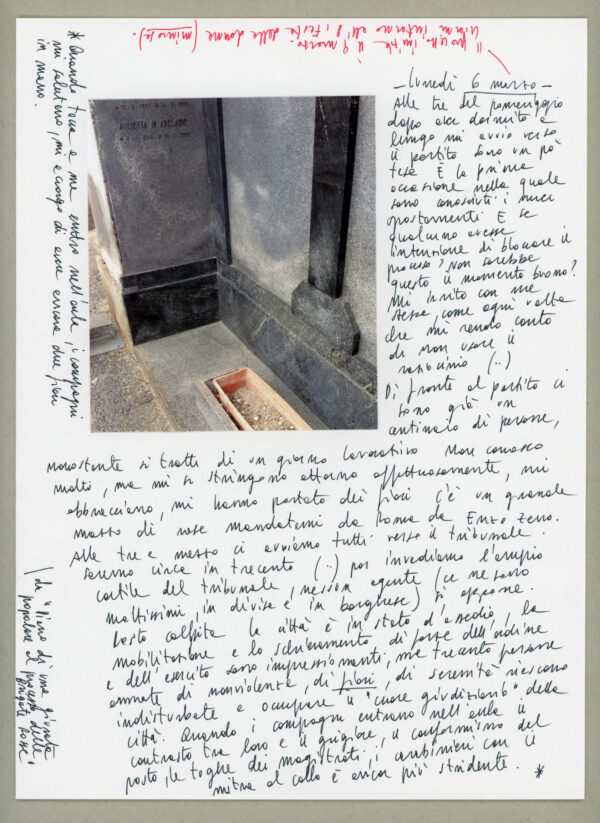 Il processo inizia il 9 marzo,
intorno all'8, festa delle donne (mimosa).
— Lunedì 6 marzo —
Alle tre del pomeriggio
dopo aver dormito a
lungo mi avvio verso
il partito sono un pò
tesa È la prima
occasione nella quale
sono conosciuti i miei
spostamenti E se
qualcuno avesse
intenzione di bloccare il
processo, non sarebbe
questo il momento buono?
Mi irrito con me
stessa, come ogni volta
che mi rendo conto
di non usare il
raziocinio (..)
Di fronte al partito ci
sono già un
centinaio di persone,
nonostante si tratti di un giorno lavorativo Non conosco
molti, ma mi si stringono attorno affettuosamente, mi
abbracciano, mi hanno portato dei fiori c'è un grande
mazzo di rose mandatemi da Roma da Enzo Zeno.
Alle tre e mezzo ci avviamo tutti verso il tribunale.
Saremo circa in trecento (..) poi invadiamo l'ampio
cortile del tribunale, nessun agente (ce ne sono
moltissimi, in divisa e in borghese) si oppone.
Resto colpita La città è in stato d'assedio, la
mobilitazione e lo schieramento di forze dell'ordine
e dell'esercito sono impressionanti, ma trecento persone
armate di nonviolenza, di fiori, di serenità riescono
indisturbate a occupare il "cuore giudiziario" della
città. Quando i compagni entrano nell'aula il
contrasto tra loro e il grigiore, il conformismo del
posto, le toghe dei magistrati, i carabinieri con il
mitra al collo è ancor più stridente. *
* Quando tocca a me entro nell'aula, i compagni
mi salutano, mi accorgo di avere ancora due fiori
in mano.
(da "Diario di una giurata
popolare al processo delle
Brigate Rosse"
AGLIETTA M ADELAIDE